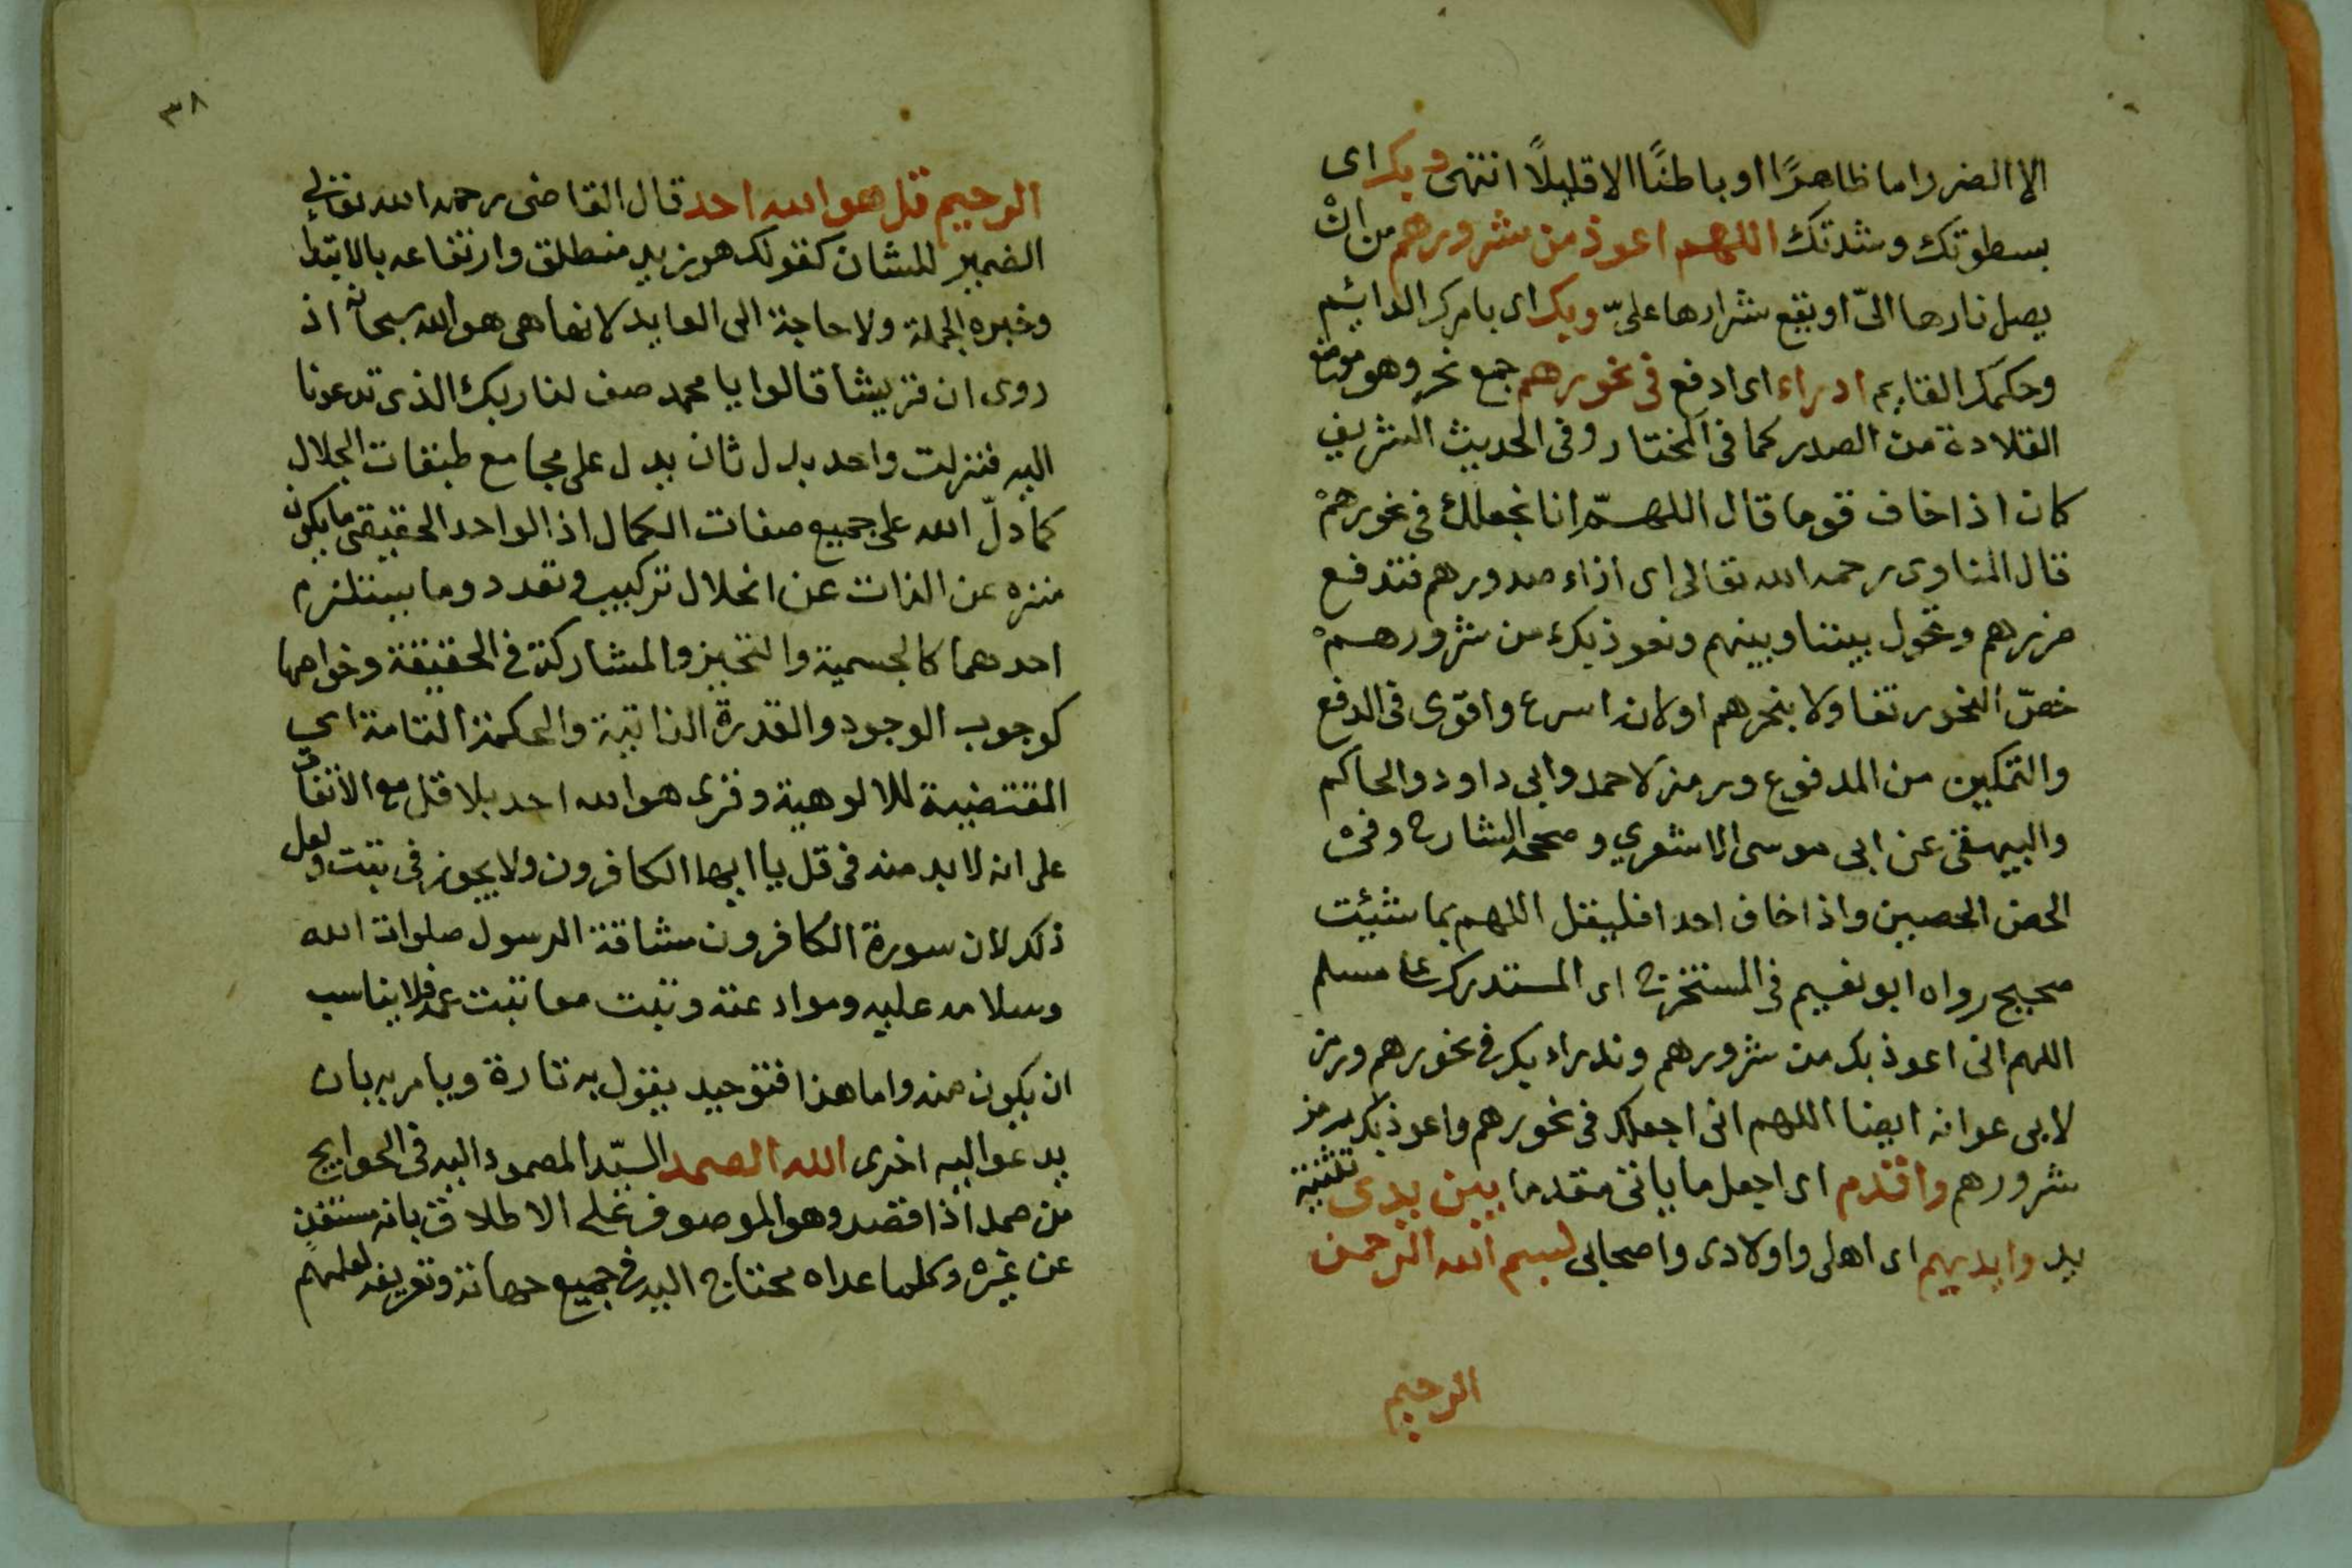 الا الضرر اما ظاهرًا او باطنًا الا قليلًا انتهى وبك اى
بسطوتك وشدتك اللهم اعوذ من شرورهم من ان
يصل نارها الىّ او يقع شرارها علىّ وبك اى بامرك الدائم
وحكمك القايم ادراء اى ادفع فى نحورهم جمع نحر وهو موضع
القلادة من الصدر كما فى المختار وفى الحديث الشريف
كان اذا خاف قوما قال اللهمّ انا نجعلك فى نحورهم
قال المناوى رحمه الله تعالى اى ازاء صدورهم فتدفع
ضررهم وتحول بيننا وبينهم ونعوذ بك من شرورهم
خصّ النحور تفاولا بنحرهم او لانه اسرع واقوى فى الدفع
والتمكين من المدفوع ورمز لاحمد وابى داود والحاكم
والبيهقى عن ابى موسى الاشعري وصححه الشارح وفى
الحصن الحصين واذا خاف احدا فليقل اللهم بما شئت
صحيح رواه ابو نعيم فى المستخرج اى المستدرك على مسلم
اللهم انى اعوذ بك من شرورهم وندراء بك فى نحورهم ورمز
لابى عوانه ايضا اللهم انى اجعلك فى نحورهم واعوذ بك من
شرورهم واقدم اى اجعل ما ياتى مقدما بين يدى تثنية
يد وايديهم اى اهلى واولادى واصحابى بسم الله الرحمن
الرحيم
٣٨
الرحيم قل هو الله احد قال القاضى رحمه الله تعالى
الضمير للشان كقولك هو زيد منطلق وارتفاعه بالابتدا
وخبره الجملة ولا حاجة الى العايد لانها هى هو الله سبحانه اذ
روى ان قريشا قالوا يا محمد صف لنا ربك الذى تدعونا
اليه فنزلت واحد بدل ثان يدل على مجامع طبقات الجلال
كما دلّ الله على جميع صفات الكمال اذ الواحد الحقيقى ما يكون
منزه عن الذات عن انحلال تركيب وتعدد وما يستلزم
احدهما كالجسمية والتحيز والمشاركة فى الحقيقة وخواصها
كوجوب الوجود والقدرة الذاتية والحكمة التامة اى
المقتضية للالوهية وقرى هو الله احد بلا قل مع الاتفاق
على انه لا بد منه فى قل يا ايها الكافرون ولا يجوز فى تبت ولعل
ذلك لان سورة الكافرون مشاقة الرسول صلوات الله
وسلامه عليه وموادعته وتبت معاتبت عمه فلا يناسب
ان يكون منه واما هذا فتوحيد يقول به تارة ويامر به بان
يدعو اليه اخرى الله الصمد السيّد المصمود اليه فى الحوايج
من صمد اذا قصد وهو الموصوف على الاطلاق بانه مستغن
عن غيره وكلما عداه محتاج اليه فى جميع جهاته وتعريفه لعلمهم